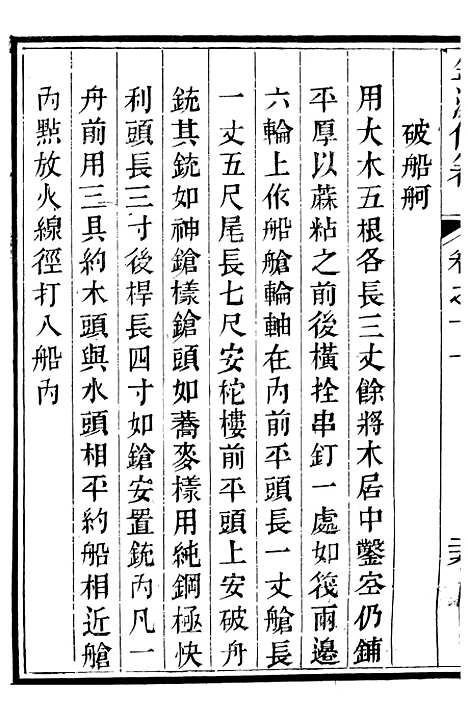 卷之十一
破船舸
用大木五根各長三丈餘將木居中鑿空仍鋪
平厚以蔴粘之前後橫拴串釘一處如筏兩邊
六輪上依船艙輪軸在內前平頭長一丈艙長
一丈五尺尾長七尺安柁樓前平頭上安破舟
銃其銃如神鎗樣鎗頭如蕎麥樣用純鋼極快
利頭長三寸後桿長四寸如鎗安置銃內凡一
舟前用三具約木頭與水頭相平約船相近艙
內點放火線徑打入船內